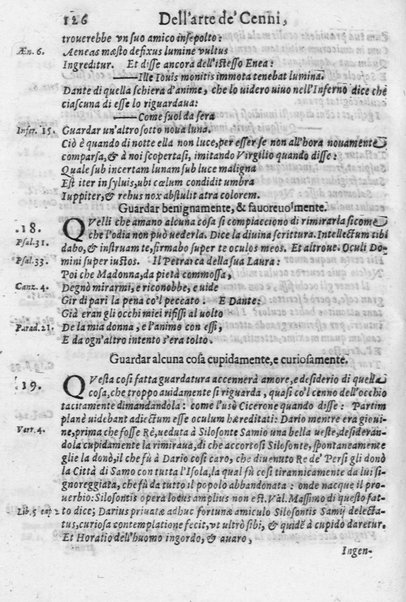 126 Dell'arte de' Cenni,
trouerebbe vn suo amico insepolto:
Æn. 6. Aeneas mæsto defixus lumine vultus
Ingreditur. Et disse ancora dell'istesso Enea:
——Ille Iouis monitis immota tenebat lumina.
Dante di quella schiera d'anime, che lo uidero uiuo nell'Inferno dice che
ciascuna di esse lo riguardaua:
——Come suol da sera
Infer. 15. Guardar vn'altro sotto noua luna.
Ciò è quando di notte ella non luce, per esser se non all'hora nouamente
comparsa, & à noi scopertasi, imitando Virgilio quando disse:
Quale sub incertam lunam sub luce maligna
Est iter in syluis, ubi cælum condidit umbra
Iuppiter, & rebus nox abstulit atra colorem.
Guardar benignamente, & fauoreuolmente.
18. QVelli che amano alcuna cosa si compiacciono di rimirarla si come
che l'odia non può uederla. Dice la diuina scrittura. Intellectum tibi
Psal. 31. dabo, & instruam te, firmabo super te oculos meos. Et altroue. Oculi Do-
Psal. 33. mini super iustos. Il Petrarca della sua Laura:
Poi che Madonna, da pietà commossa,
Canz. 4. Degnò mirarmi, e riconobbe, e uide
Gir di pari la pena co'l peccato. E Dante:
Già eran gli occhi miei rifissi al uolto
Parad. 21. De la mia donna, e l'animo con essi,
E da ogn'altro intento s'era tolto.
Guardar alcuna cosa cupidamente, e curiosamente.
19. QVesta così fatta guardatura accennerà amore, e desiderio di quella
cosa, che troppo auidamente si riguarda, quasi co'l cenno dell'occhio
tacitamente dimandandola: come l'usò Cicerone quando disse: Partim
planè uidebant adiectum esse oculum hæreditati: Dario mentre era gioui-
Varr. 4. ne, prima che fosse Rè, ueduta à Silosonte Samio una bella ueste, desideran-
dola cupidamente la rimiraua, di che accortosi Silosonte, spontaneamente
glie la donò, il che fù à Dario così caro, che diuenuto Re de' Persi gli donò
la Città di Samo con tutta l'Isola, la qual fù così tirannicamente da lui si-
gnoreggiata, che fù da tutto il popolo abbandonata: onde nacque il pro-
uerbio: Silosontis opera locus amplius non est. Val. Massimo di questo fat-
Lib. 5 cap 2 to dice; Darius priuatæ adhuc fortunæ amiculo Silosontis Samij delecta-
tus, curiosa contemplatione fecit, vt ultrò sibi, & quidẽ à cupido daretur.
Et Horatio dell'huomo ingordo, & auaro,
Ingen-